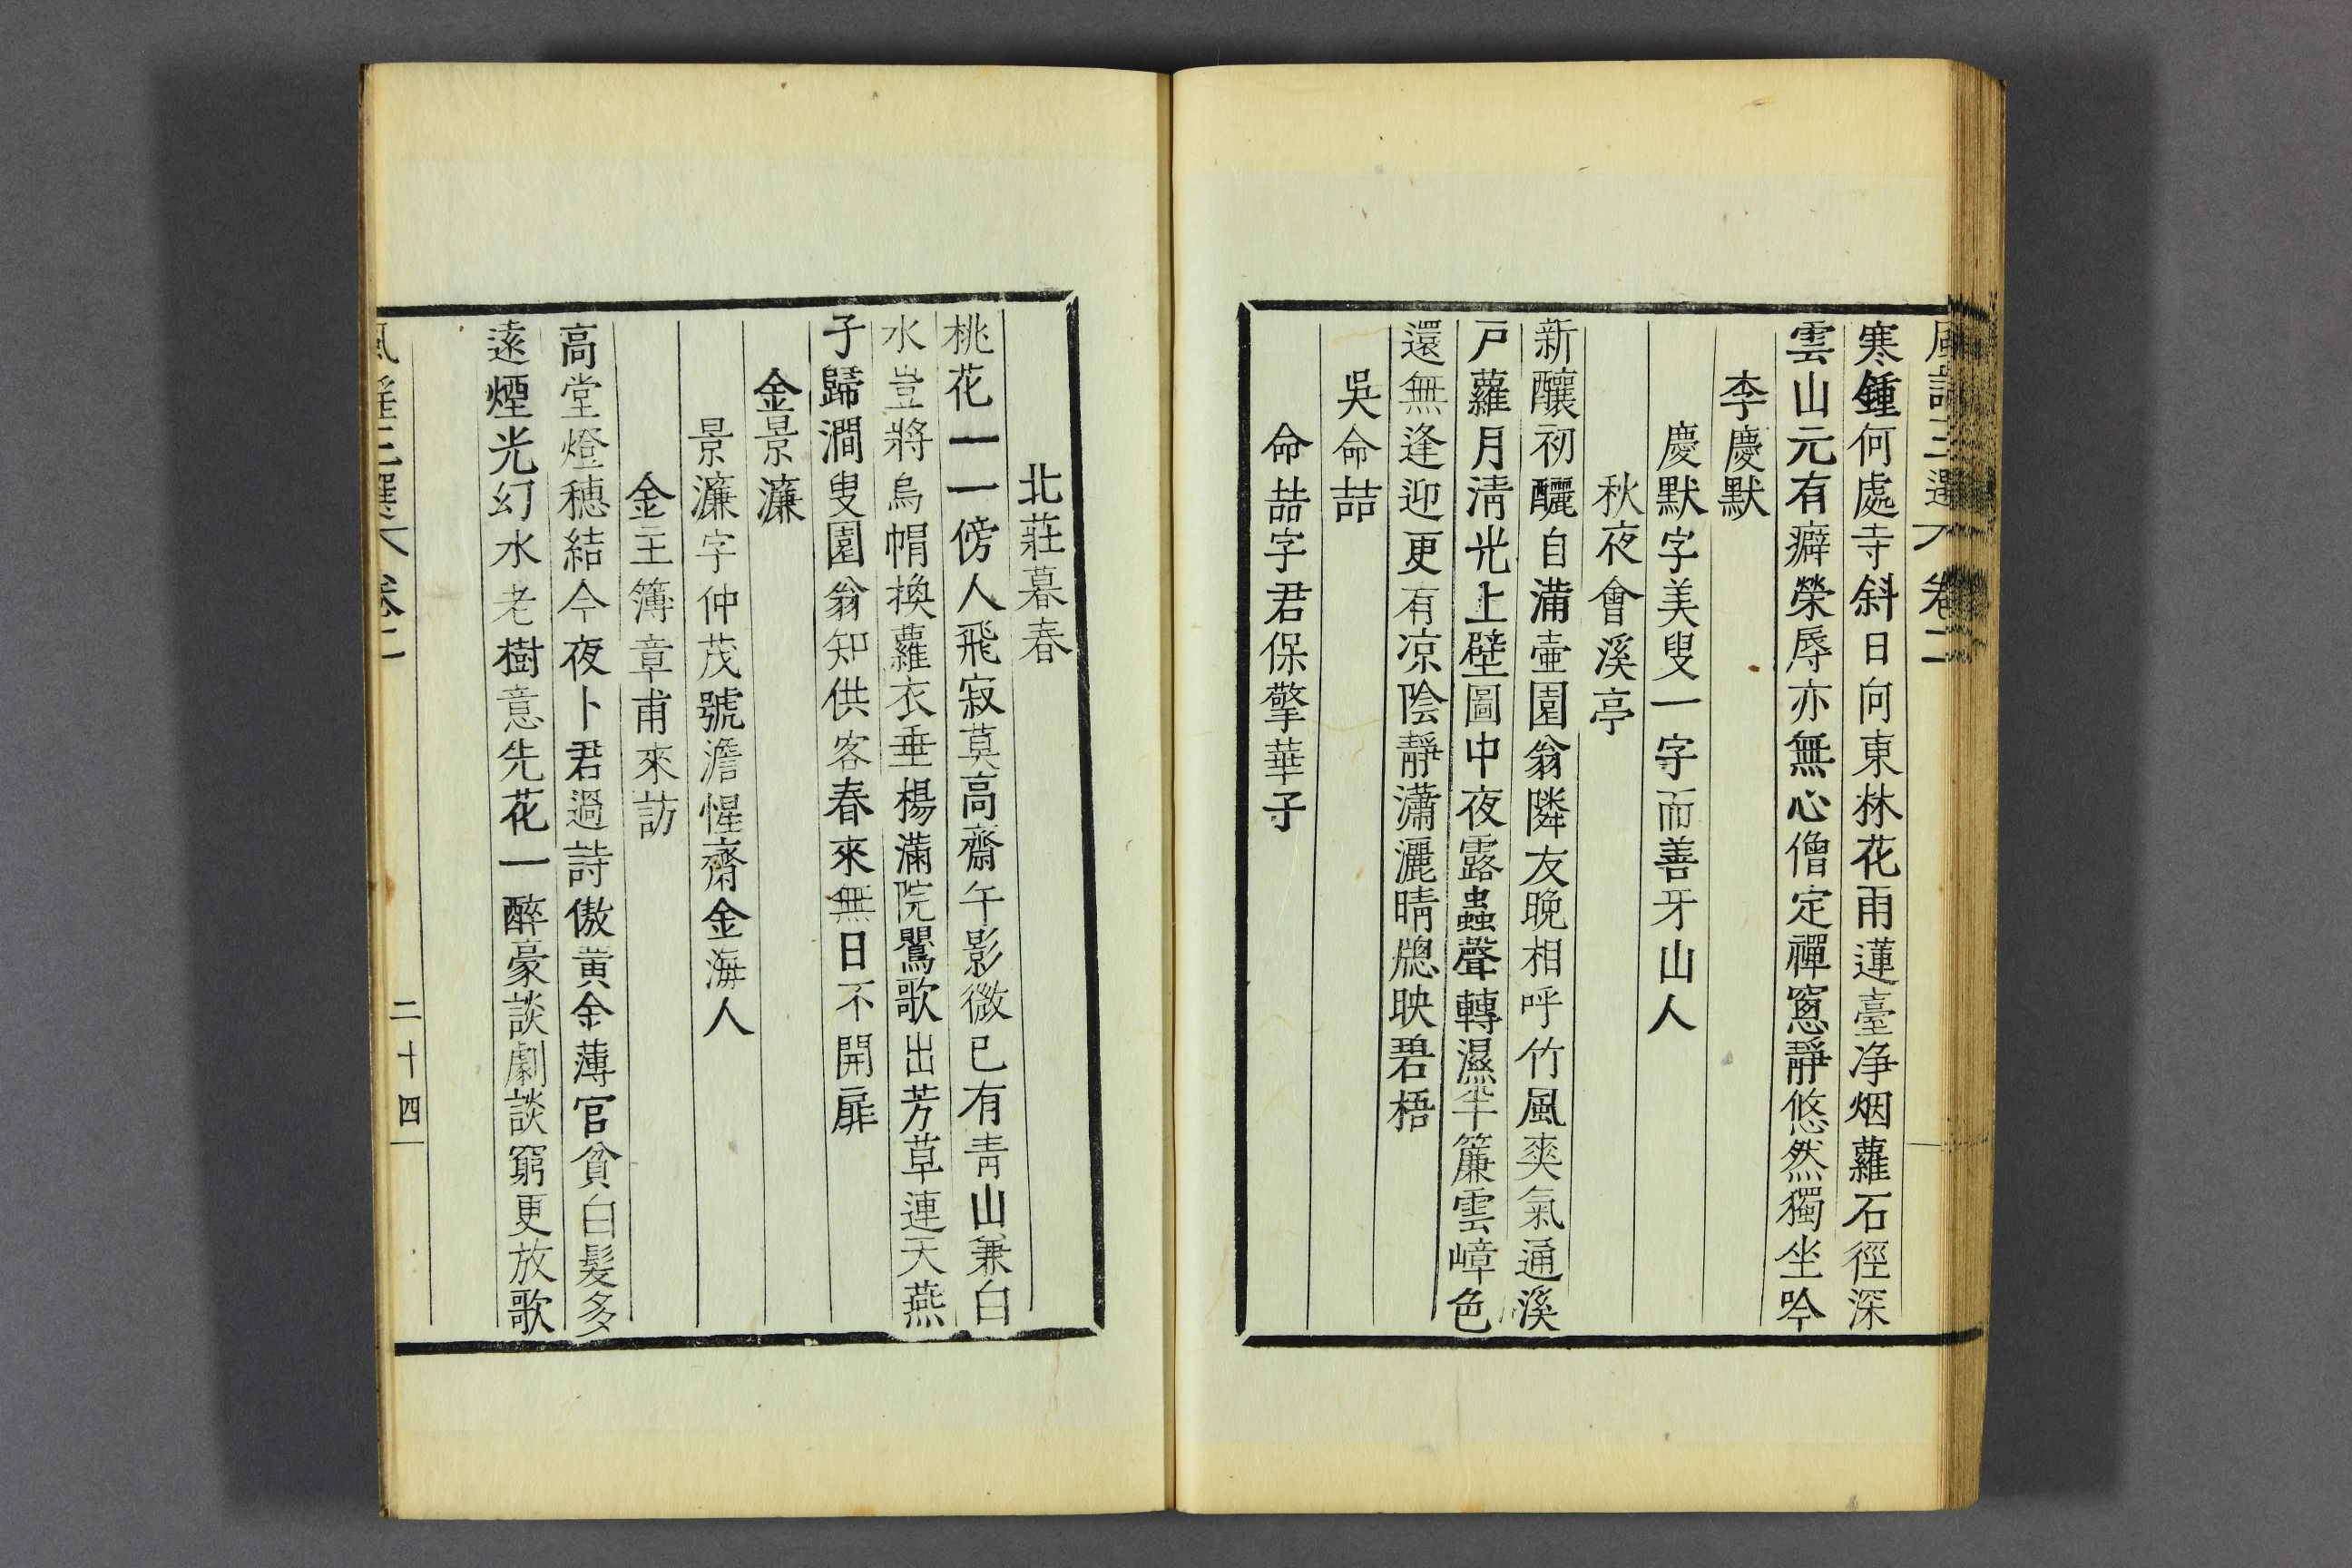 風謠三選 卷二
寒鍾何處寺斜日向東林花雨蓮臺净烟蘿石徑深
雲山元有癖榮辱亦無心僧定禪窻靜悠然獨坐吟
李慶默
慶默字美叟一字而善牙山人
秋夜會溪亭
新釀初釃自滿壺園翁隣友晚相呼竹風爽氣通溪
戶蘿月淸光上壁圖中夜露蟲聲轉濕半簾雲嶂色
還無逢迎更有凉陰靜瀟灑晴牕映碧梧
吳命喆
命喆字君保擎華子
北莊暮春
桃花一一傍人飛寂莫高齋午影微已有靑山兼白
水豈將烏帽換蘿衣垂楊滿院鸎歌出芳草連天燕
子歸澗叟園翁知供客春來無日不開扉
金景濂
景濂字仲茂號澹惺齋金海人
金主簿章甫來訪
高堂燈穗結今夜卜君過詩傲黃金薄官貧白髮多
遠煙光幻水老樹意先花一醉豪談劇談窮更放歌
風謠三選 卷二
二十四